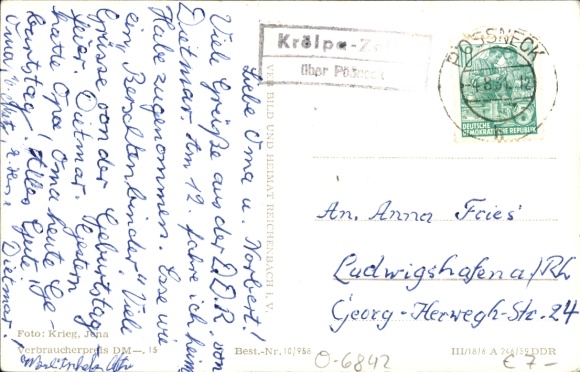 Liebe Oma u. Norbert!
Viele Grüße aus der D.D.R. von
Dietmar. Am 12. fahre ich heim
Habe zugenommen. Esse wie
ein "Berschtenbinder". Viele
Grüsse von der Geburtstag-
feier. Dietmar. Gestern
hatte Opa, Oma heute Ge-
burtstag. Alles Gute
Oma,
Dietmar!
Foto: Krieg, Jena
Verbraucherpreis DM —,15
VERLAG BILD UND HEIMAT REICHENBACH I. V.
Best.-Nr. 10/958
Krölpa-
über Pößneck
PÖSSNECK
10
DEUTSCHE
DEMOKRATISCHE REPUBLIK
An. Anna Fries
Ludwigshafen a/Rh
Georg-Herwegh-Str. 24
III/18/6 A 246/59 DDR
O-6842
€ 7-